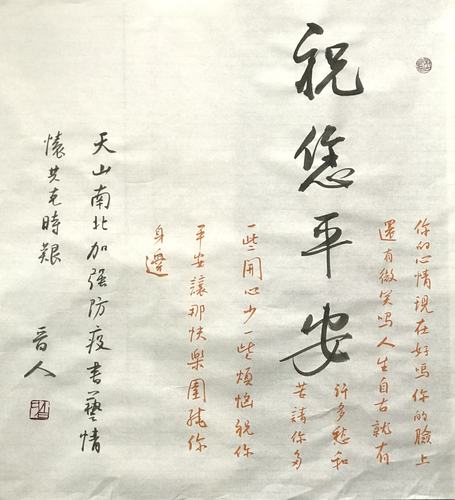 祝您平安
你的心情現在好嗎你的臉上
還有微笑嗎人生自古就有
許多愁和
苦請你多
一些開心少一些煩惱祝你
平安讓那快樂圍繞你
身邊
天山南北加强防疫書藝情
懷共克時艱
晋人